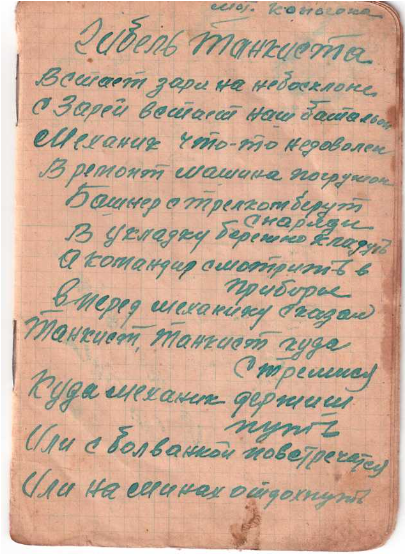 муз. Коногона
Гибель Танкиста
Встает заря на небосклоне
с Зарей встает наш батальон
Механик что-то недоволен
В ремонт машина погружон
Башнер с трелком берут
снаряди
В укладку бережно кладуть
А командир смотрить в
приборы
Вперед механику сказал
Танкист, Танкист куда
стремися
Куда механик держиш
путь
Или с болванкой повстречятся
Или на минах отдохнуть